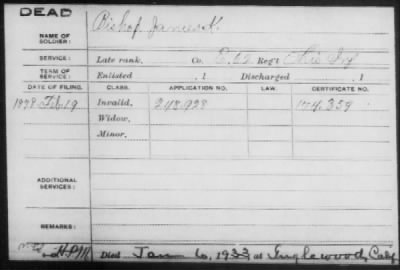 DEAD
NAME OF SOLDIER: Bishop James H.
SERVICE: Late rank, Co. E, 62 Reg't Ohio Inf
TERM OF SERVICE: Enlisted , 1 Discharged , 1
DATE OF FILING. CLASS. APPLICATION NO. LAW. CERTIFICATE NO.
1879 Feb. 19 Invalid, 248.928 174.359
Widow,
Minor,
ADDITIONAL SERVICES:
REMARKS:
Died Jan 6, 1933 at Inglewood, Calif